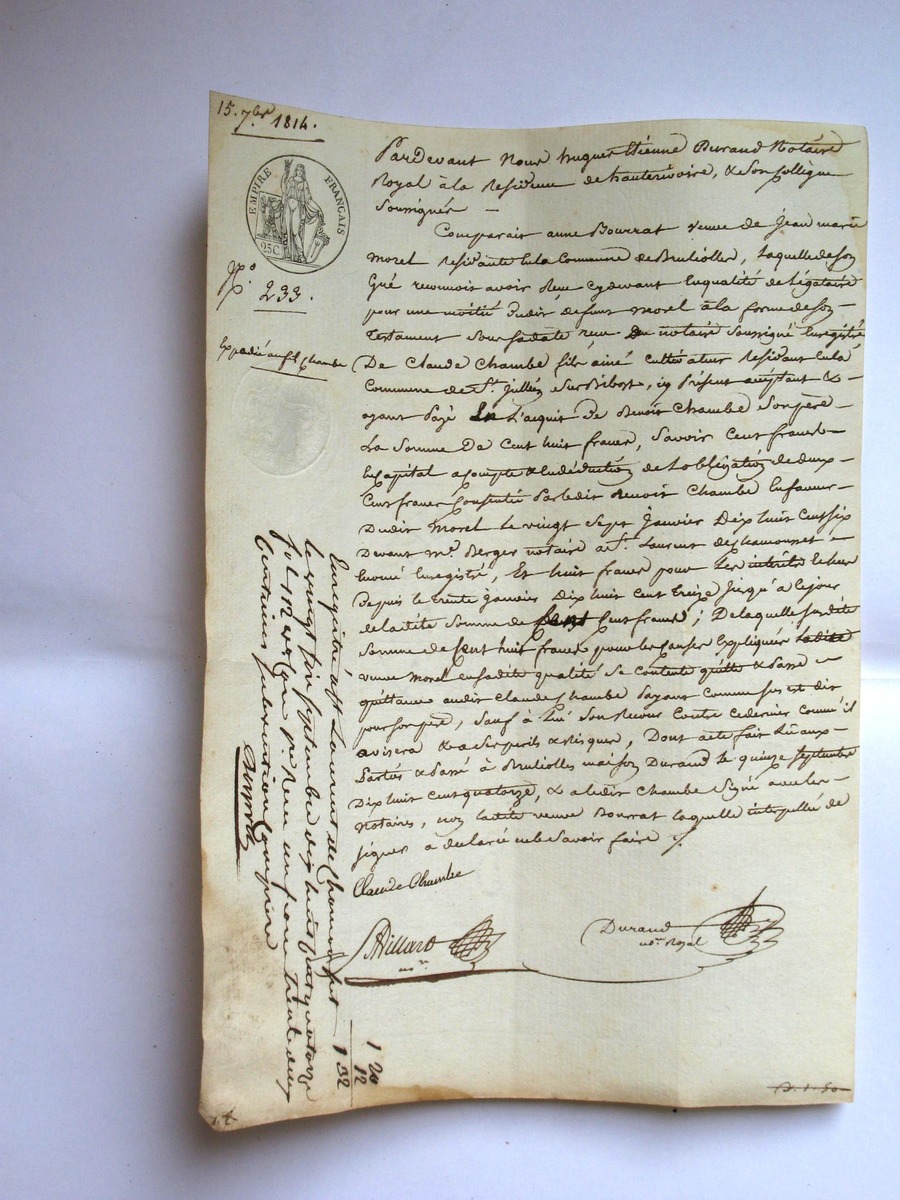 15. 7bre 1814.
EMPIRE FRANÇAIS
25C
No.
233.
Expedié au fils Chambe
Pardevant Nous hugues Etienne Durand Notaire
Royal à la Residence de hauterivoire, & son Collègue
Soussignés —
Comparait anne Bourrat veuve de Jean marie
morel Residante en la Commune de Brulioller, Laquelle de son
Gré reconnoit avoir Reçu cydevant en qualité de Légataire
pour une moitié dudit defunt morel à la forme de son
Testament sous sa date reçu Du notaire soussigné Enregistré
De Claude Chambe fils ainé cultivateur Residant en la
Commune de St. Jullien sur Bibost, icy Présent acceptant &
ayant Payé En L'acquit De Benoit Chambe Son père —
La Somme De Cent huit francs, Savoir Cent francs
En Capital acompte & en déduction de l'obligation de deux
Cent francs Consentie Par ledit Benoit Chambe En faveur
Dudit Morel Le vingt Sept Janvier Dix huit Cent Six
Devant me. Berger notaire à St. Laurent de chamousset
Enregistré, Et huit francs pour Les intérêts
Depuis le trente janvier Dix huit Cent treize Jusqu'à ce jour
de ladite Somme de Cent francs; De laquelle susdite
Somme de Cent huit francs pour les Causes Expliquées ladite
veuve Morel en sadite qualité Se Contente quitte & Passe
quittance audit Claude Chambe Payant Comme sus est dit
pour son père, Sauf à lui Son Recour Contre ce dernier Comme il
avisera & à ses perils & risques, Dont acte fait Lu aux
Parties & Passé à Brulioller maison Durand le quinze Septembre
Dix huit Cent quatorze, & a ledit Chambe Signé avec les
Notaires, non ladite veuve Bourrat laquelle interpellée de
signer a declaré ne le Savoir faire ./.
Claude Chambe
Villard
nore.
Durand
nore. Royal
Enregistré à St Laurent de Chamousset
le vingt Septembre dix huit cent quatorze
fol. 112 Reçu un franc trente deux
Centimes subvention Comprise
1 20
12
1 32